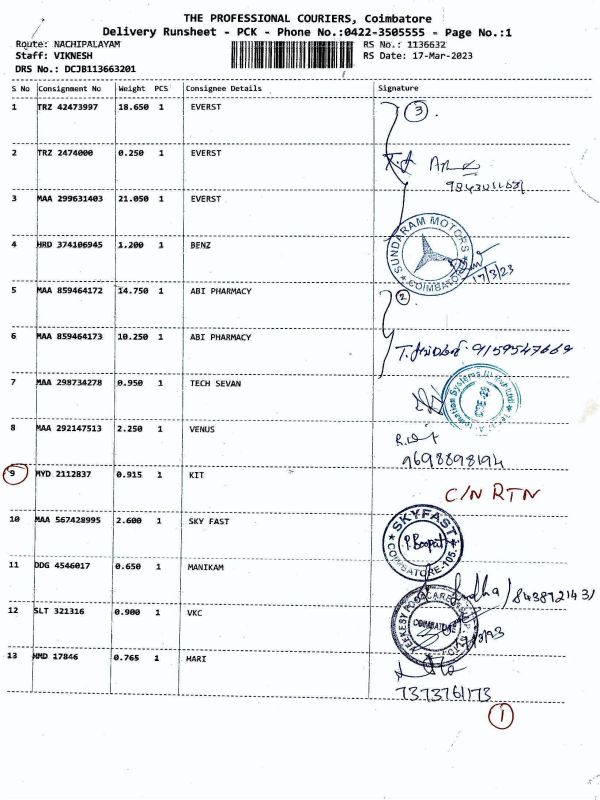 THE PROFESSIONAL COURIERS, Coimbatore
Delivery Runsheet - PCK - Phone No.:0422-3505555 - Page No.:1
Route: NACHIPALAYAM RS No.: 1136632
Staff: VIKNESH RS Date: 17-Mar-2023
DRS No.: DCJB113663201
S No Consignment No Weight PCS Consignee Details Signature
1 TRZ 42473997 18.650 1 EVERST 3
2 TRZ 2474000 0.250 1 EVERST
3 MAA 299631403 21.050 1 EVERST
4 HRD 374106945 1.200 1 BENZ SUNDARAM MOTORS COIMBATORE
17/3/23
5 MAA 859464172 14.750 1 ABI PHARMACY 2
6 MAA 859464173 10.250 1 ABI PHARMACY 9159547669
7 MAA 298734278 0.950 1 TECH SEVAN
8 MAA 292147513 2.250 1 VENUS
9698898194
9 MYD 2112837 0.915 1 KIT C/N RTN
10 MAA 567428995 2.600 1 SKY FAST SKYFAST COIMBATORE-105. P. Boopat
11 DDG 4546017 0.650 1 MANIKAM
12 SLT 321316 0.900 1 VKC COIMBATORE
13 HMD 17846 0.765 1 HARI
7373761173
1